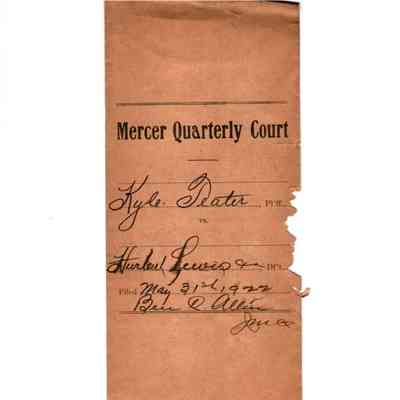 Mercer Quarterly Court
Kyle Teater, Pltff.
vs.
Lewis &c Dft.
Filed May 31st, 1922
Ben C Allin